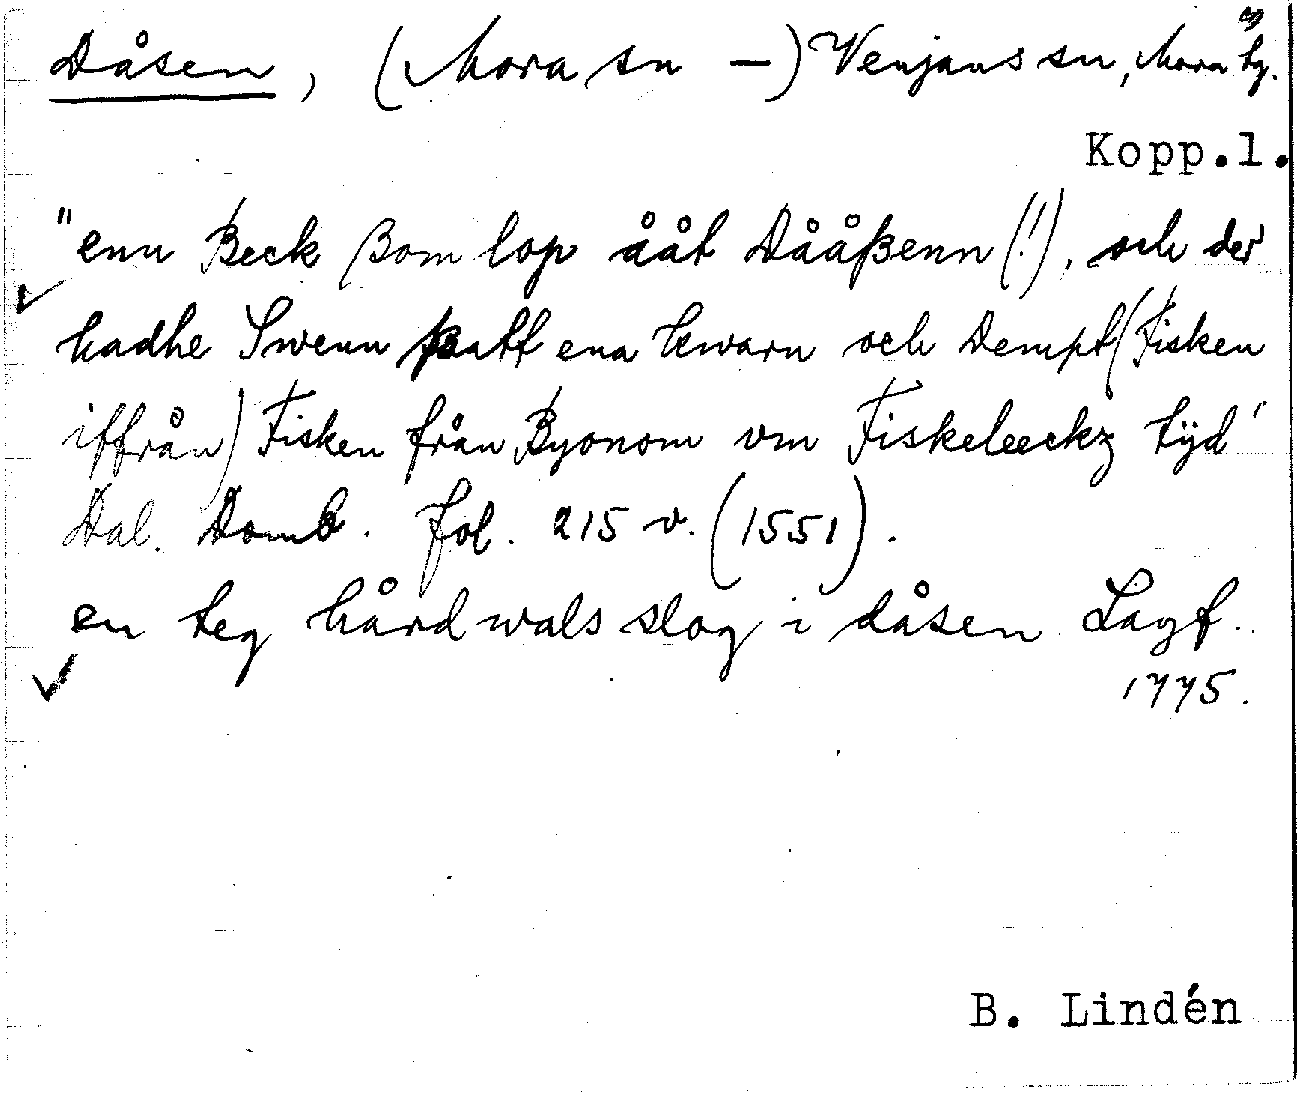 Dåsen, (Mora sn –) Venjans sn, Mora tg.
Kopp.l.
"enn Beck ßom lop ååt Dååßenn (!), och der
hadhe Swenn ßatt ena kwarn och Dempt (Fisken
iffrån) Fisken från Byonom vm Fiskeleeckz tÿd'
Dal. Domb. fol. 215 v. (1551).
en teg hårdwals slog i dåsen Lagf.
1775.
B. Lindén